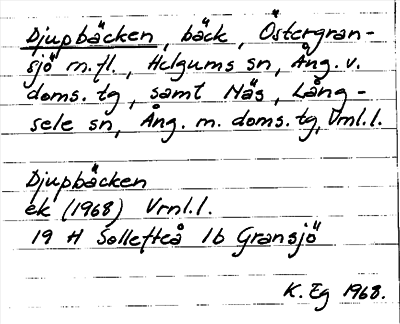 Djupbäcken, bäck, Östergran-
sjö m.fl., Helgums sn, Ång. v.
doms. tg, samt Näs, Lång-
sele sn, Ång. m. doms. tg, Vrnl.l.
Djupbäcken
ek (1968) Vrnl.l.
19 H Sollefteå 1b Gransjö
K. Eg 1968.